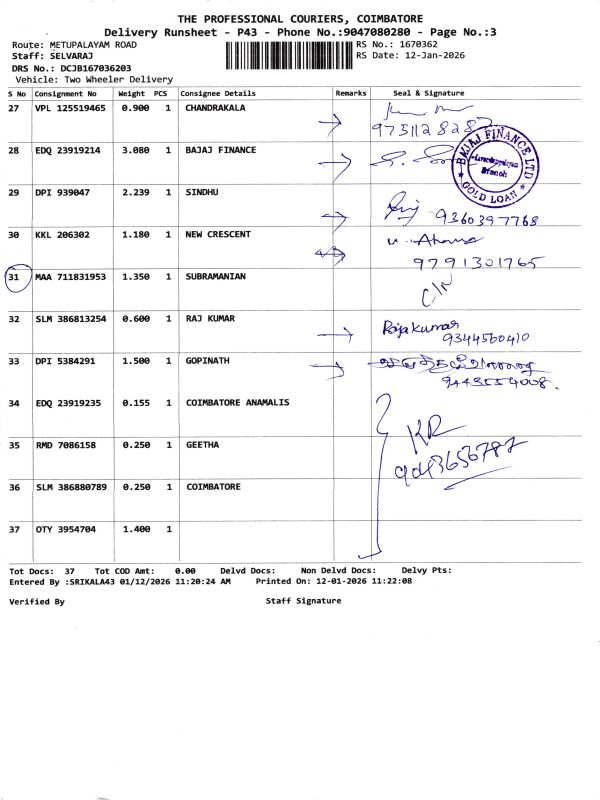 THE PROFESSIONAL COURIERS, COIMBATORE
Delivery Runsheet - P43 - Phone No.:9047080280 - Page No.:3
Route: METUPALAYAM ROAD
RS No.: 1670362
Staff: SELVARAJ
RS Date: 12-Jan-2026
DRS No.: DCJB167036203
Vehicle: Two Wheeler Delivery
S No Consignment No Weight PCS Consignee Details Remarks Seal & Signature
27 VPL 125519465 0.900 1 CHANDRAKALA
9751128287
28 EDQ 23919214 3.080 1 BAJAJ FINANCE
BAJAJ FINANCE LTD
Branch
GOLD LOAN
29 DPI 939047 2.239 1 SINDHU
9360397768
30 KKL 206302 1.180 1 NEW CRESCENT
9791301765
31 MAA 711831953 1.350 1 SUBRAMANIAN
C/N
32 SLM 386813254 0.600 1 RAJ KUMAR
Rajakumar
9344560410
33 DPI 5384291 1.500 1 GOPINATH
34 EDQ 23919235 0.155 1 COIMBATORE ANAMALIS
KR
9043656787
35 RMD 7086158 0.250 1 GEETHA
36 SLM 386880789 0.250 1 COIMBATORE
37 OTY 3954704 1.400 1
Tot Docs: 37 Tot COD Amt: 0.00 Delvd Docs: Non Delvd Docs: Delvy Pts:
Entered By :SRIKALA43 01/12/2026 11:20:24 AM Printed On: 12-01-2026 11:22:08
Verified By Staff Signature